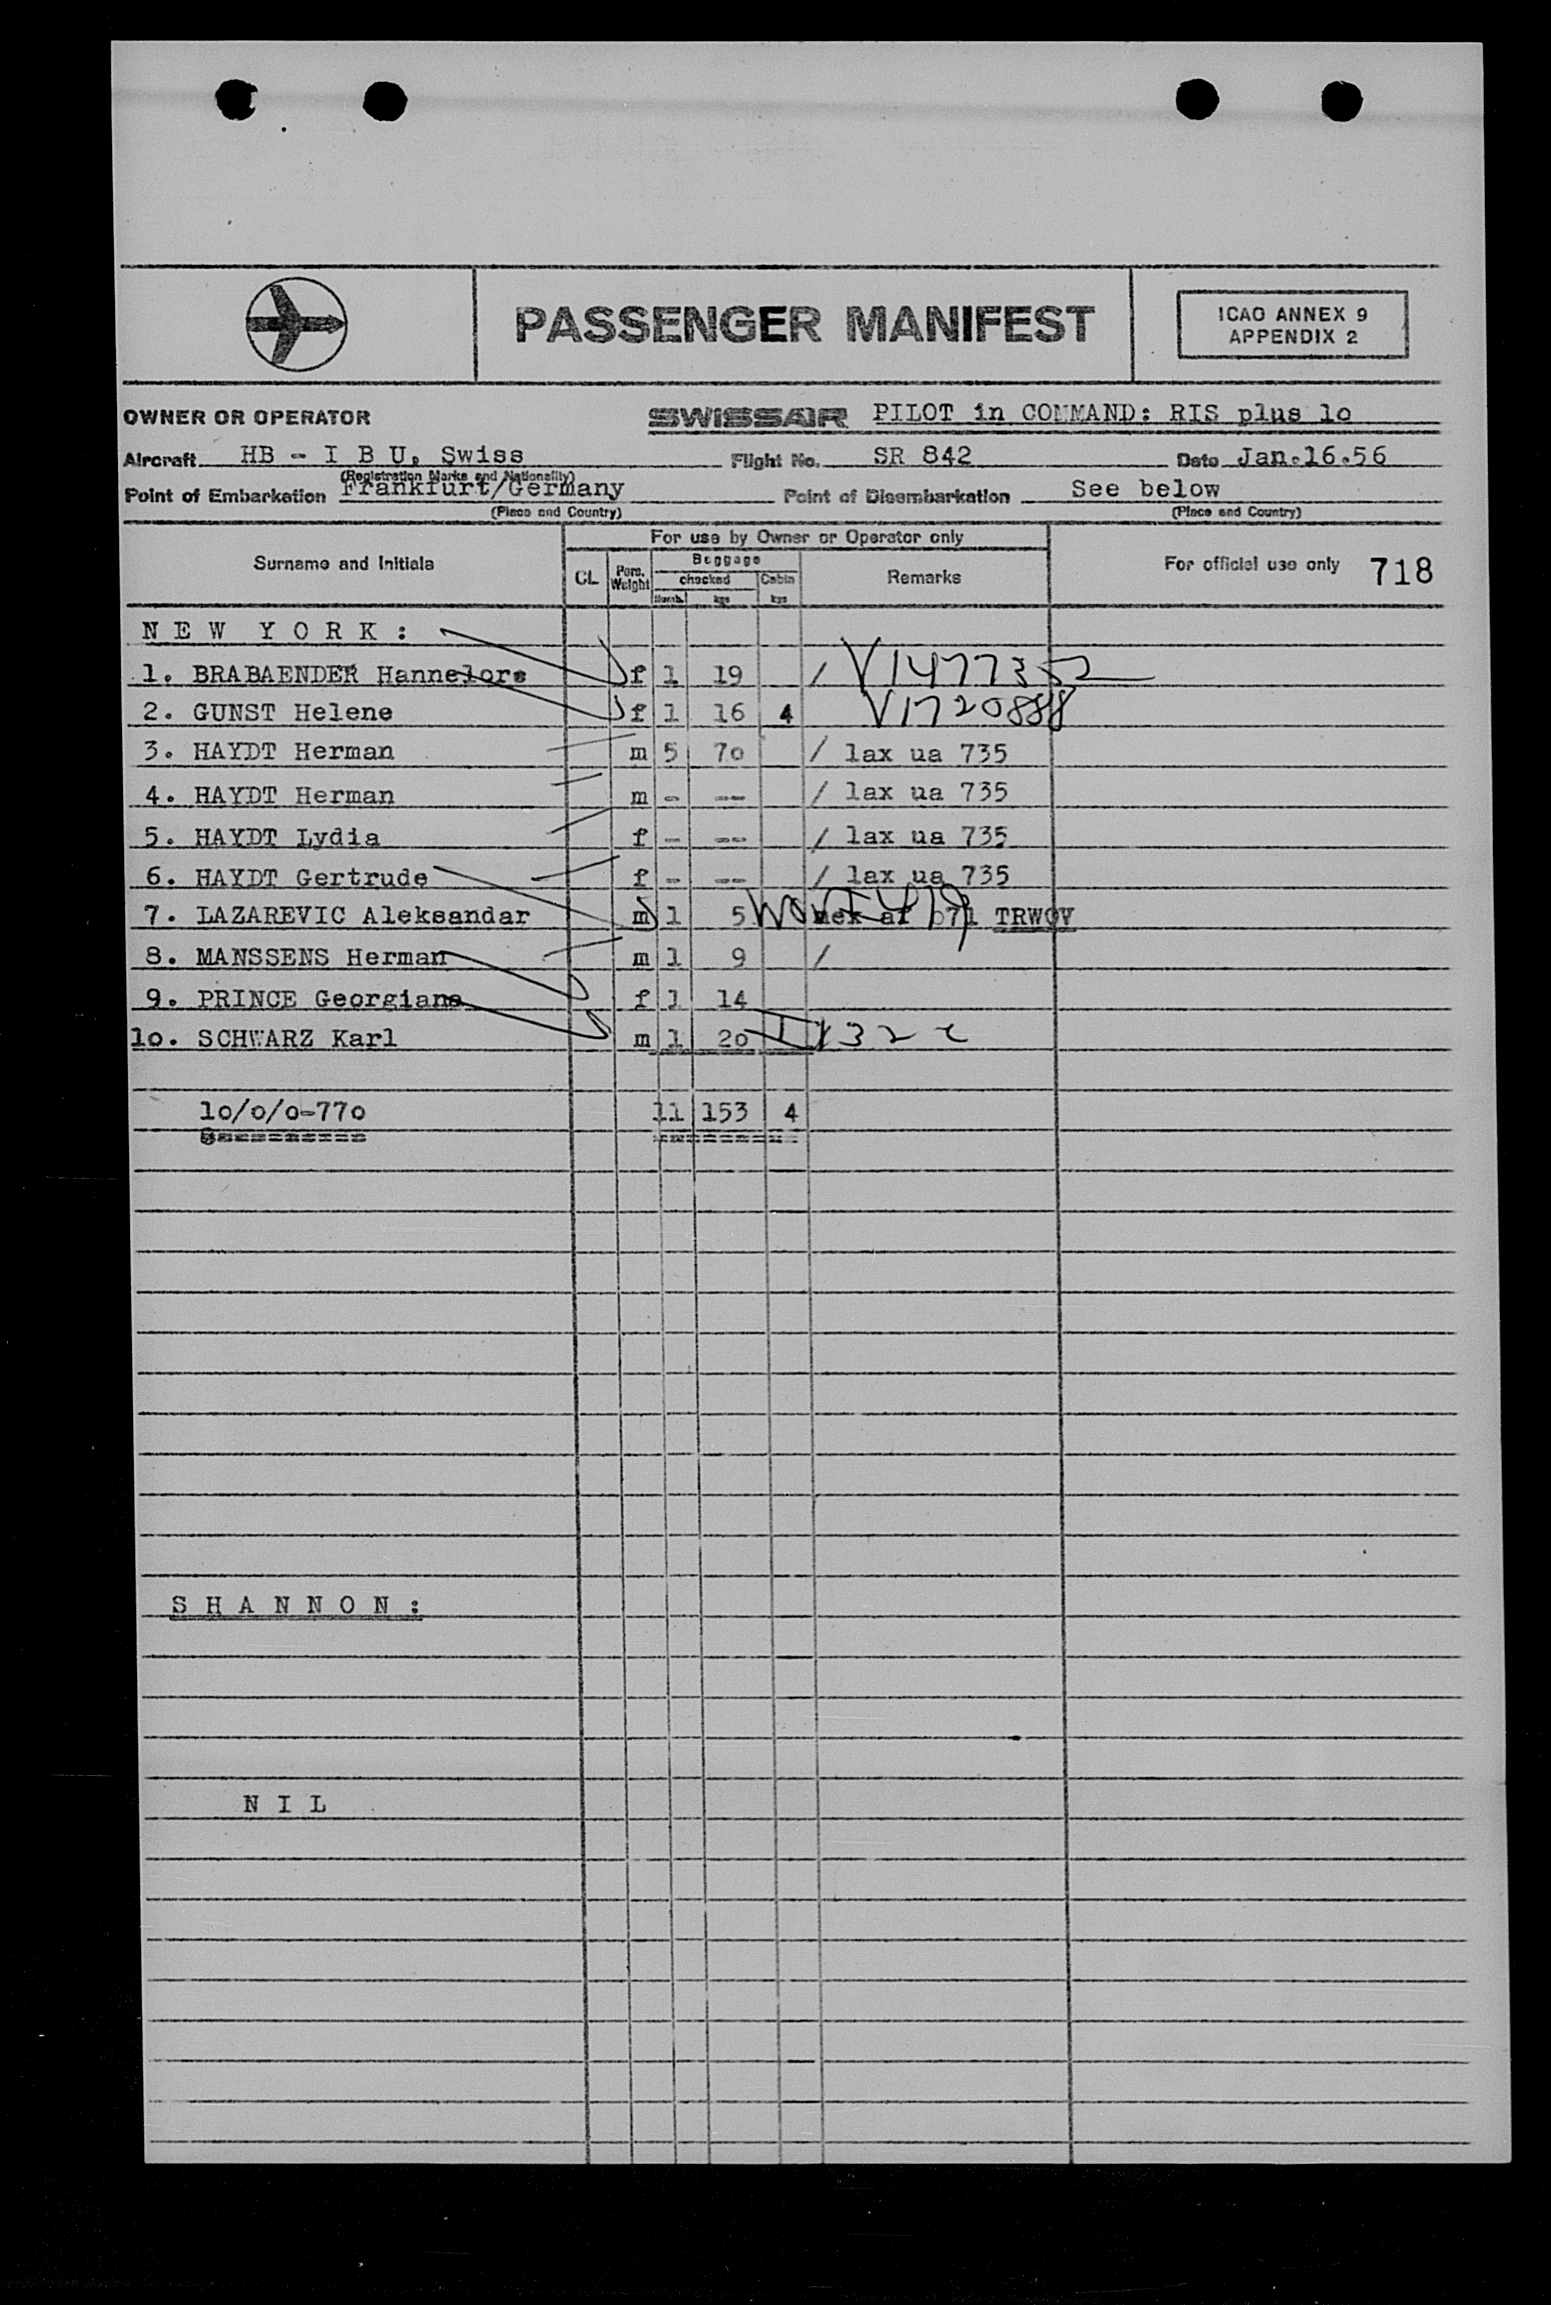 PASSENGER MANIFEST
ICAO ANNEX 9
APPENDIX 2
OWNER OR OPERATOR SWISSAIR PILOT in COMMAND: RIS plus lo
Aircraft HB - I B U, Swiss Flight No. SR 842 Date Jan.16.56
(Registration Marks and Nationality)
Point of Embarkation Frankfurt/Germany Point of Disembarkation See below
(Place and Country) (Place and Country)
For use by Owner or Operator only
Surname and Initials CL Pers. Weight Baggage checked Numb. kgs Cabin kgs Remarks For official use only 718
N E W Y O R K :
1. BRABAENDER Hannelore f 1 19 / V1477352
2. GUNST Helene f 1 16 4 V1720888
3. HAYDT Herman m 5 7o / lax ua 735
4. HAYDT Herman m - -- / lax ua 735
5. HAYDT Lydia f - -- / lax ua 735
6. HAYDT Gertrude f - -- / lax ua 735
7. LAZAREVIC Aleksandar m 1 5 mex af 071 TRWOV
8. MANSSENS Herman m 1 9 /
9. PRINCE Georgiana f 1 14
lo. SCHWARZ Karl m 1 2o I 1322
lo/o/o-77o 11 153 4
S H A N N O N :
N I L